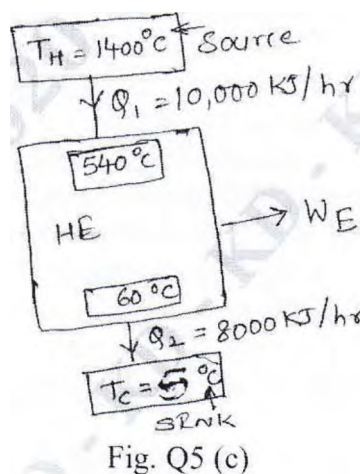 T_H = 1400°C Source
Q_1 = 10,000 KJ/hr
540°C
HE
W_E
60°C
Q_2 = 8000 KJ/hr
T_C = 5 °C
SRNK
Fig. Q5 (c)